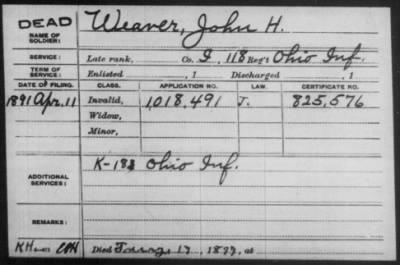 DEAD
NAME OF SOLDIER: Weaver, John H.
SERVICE: Late rank, Co. I, 118 Reg't Ohio Inf.
TERM OF SERVICE: Enlisted , 1 Discharged , 1
DATE OF FILING. CLASS. APPLICATION NO. LAW. CERTIFICATE NO.
1891 Apr. 11 Invalid, 1,018,491 J. 825,576
Widow,
Minor,
ADDITIONAL SERVICES: K-183 Ohio Inf.
REMARKS:
Died 17, 1899, at